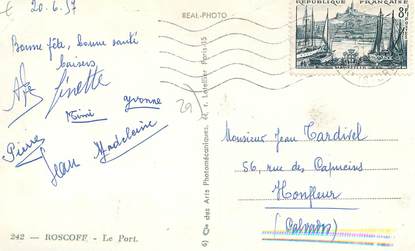 20.6.57
REAL-PHOTO
RÉPUBLIQUE FRANÇAISE
8F
Bonne fête, bonne santé
baisers
Ginette
Mimi
yvonne
29
Pierre
Jean
Madeleine
Monsieur Jean Tardivel
56, rue des Capucins
Honfleur
(Calvados)
242 - ROSCOFF - Le Port.
Cie des Arts Photomécaniques, 44, r. Letellier Paris-15